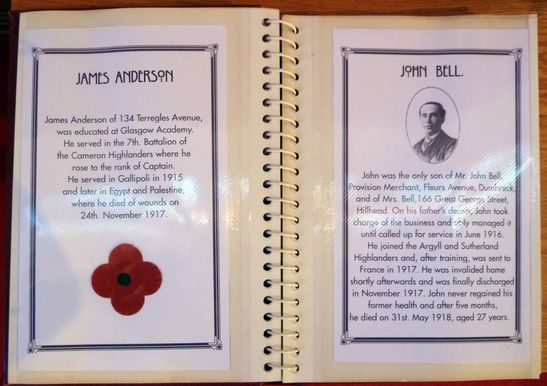 JAMES ANDERSON
James Anderson of 134 Terregles Avenue,
was educated at Glasgow Academy.
He served in the 7th. Battalion of
the Cameron Highlanders where he
rose to the rank of Captain.
He served in Gallipoli in 1915
and later in Egypt and Palestine,
where he died of wounds on
24th. November 1917.
JOHN BELL.
John was the only son of Mr. John Bell,
Provision Merchant, Fleurs Avenue, Dumbreck,
and of Mrs. Bell,166 Great George Street,
Hillhead. On his father's death, John took
charge of the business and ably managed it
until called up for service in June 1916.
He joined the Argyll and Sutherland
Highlanders and, after training, was sent to
France in 1917. He was invalided home
shortly afterwards and was finally discharged
in November 1917. John never regained his
former health and after five months,
he died on 31st. May 1918, aged 27 years.